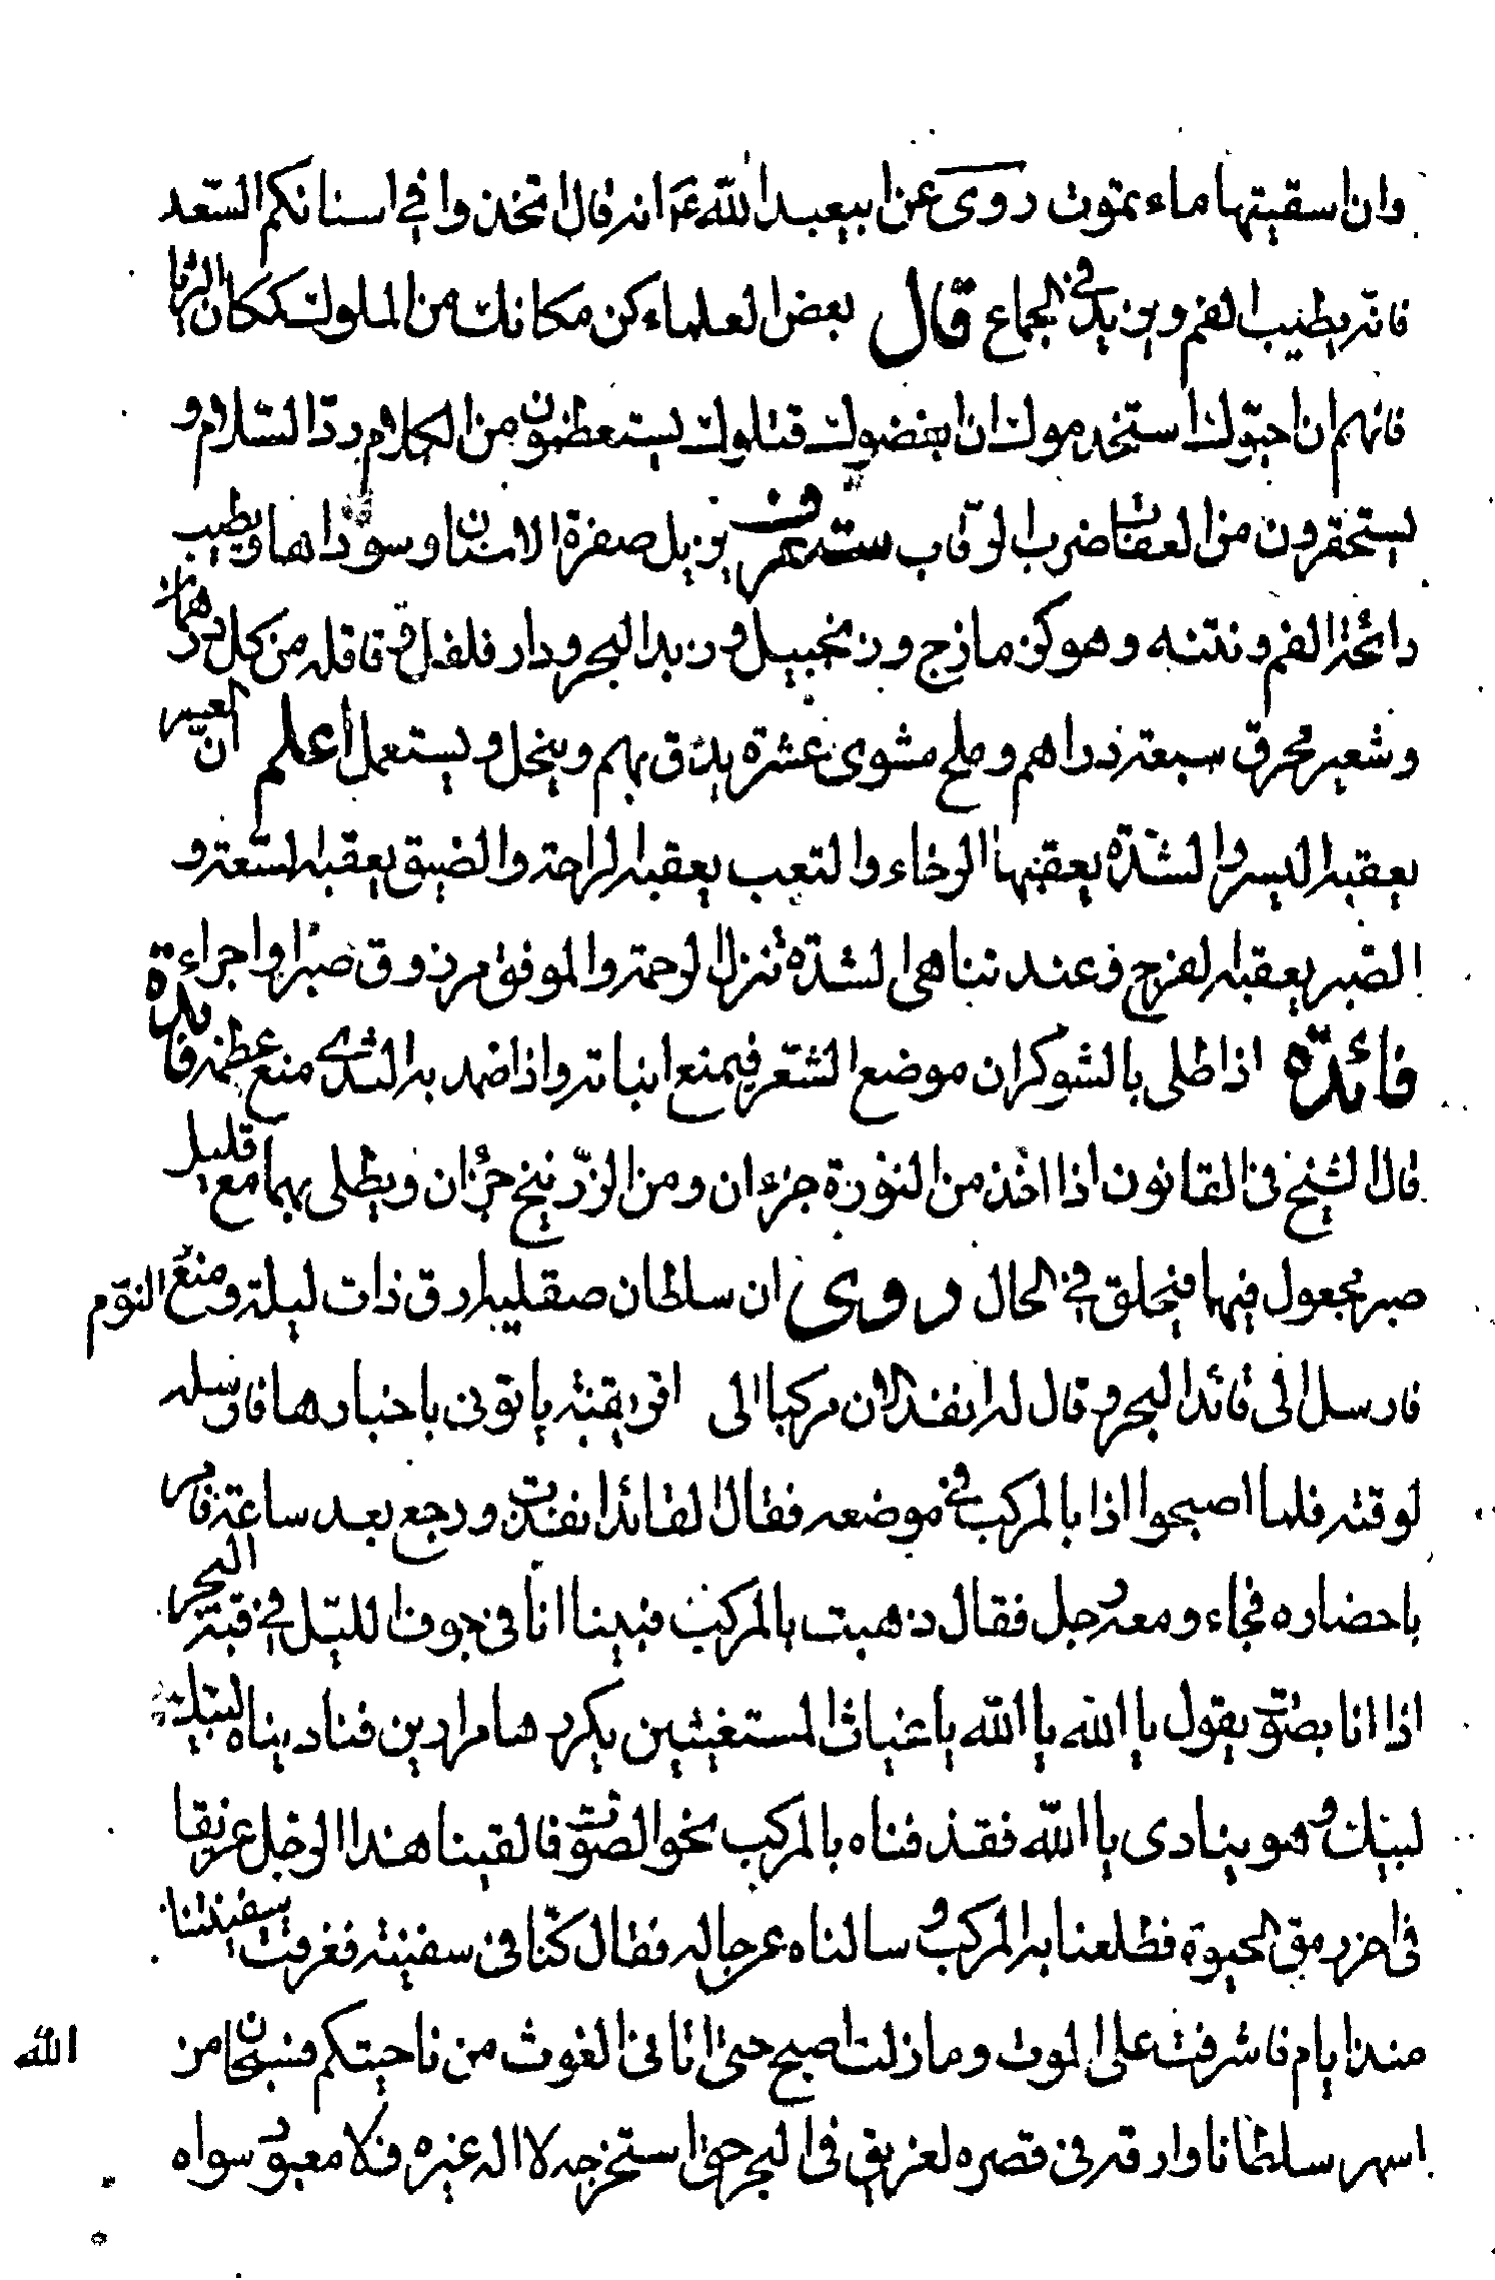 وان اسقيتها ماء تموت روى عن ابيعبدالله ع انه قال اتخذوا في اسنانكم السّعد
فانّه يطيب الفم ويزيد في الجماع قال بعض العلماء كن مكانك من الملوك كمكان
فانهم ان احبّوك استخدموك ان ابغضوك قتلوك يستعظمون من الكلام ردّ السّلام و
يستحقرون من العقاب ضرب الرّقاب سنون يزيل صفرة الاسنان وسوادها ويطيب
رائحة الفم ونتنه وهو كزمازج وزنجبيل وزبد البحر ودار فلفل وقاقله من كل درهمان
وشعير محرق سبعة دراهم وملح مشوى عشرة يدّق بهم وينخل ويستعمل اعلم انّ العسر
يعقبه اليسر والشدّة يعقبها الرخاء والتعب يعقبه الراحة والضيق يعقبه السّعة و
الصّبر يعقبه الفرج وعند تناهى الشدّة تنزل الرحمة والموفق من رزق صبرا واجراء
فائدة اذا طلى بالشوكران موضع الشّعر فيمنع انباته واذا ضمد به الثدى منع عظمه فايدة
قال الشيخ في القانون اذا اخذ من النوّرة جزءان ومن الزّرنيخ جزءان ويطلى بهما مع قليل
صبر مجعول فيهما فيحلق في الحال روى ان سلطان صقليه ارق ذات ليلة ومنع النوّم
فارسل الى قائد البحر وقال له انفذ الان مركبا الى افريقية ياتونى باخبارها فارسله
لوقته فلما اصبحوا اذا بالمركب في موضعه فقال القائد انفذت ورجع بعد ساعة فامر
باحضاره فجاء ومعه رجل فقال ذهبت بالمركب فبينا انا في جوف الليّل في قبة البحر
اذا انا بصوّت يقول يا الله يا الله يا غياث المستغيثين يكررها مرارا فناديناه لبّيك
لبيك وهو ينادى يا الله فقذفناه بالمركب نحو الصوّت فالقينا هذا الرجل غريقا
في اخر رمق الحيوة فطلعنا به المركب وسالناه عن حاله فقال كنّا في سفينة فغرقت سفينتنا
منذ ايام فاشرفت على الموت وما زلت اصيح حتى اتانى الغوث من ناحيتكم فسبحان من
الله
اسهر سلطانا وارقه في قصره لغريق في البحر حتى استخرجه لا اله غيره فلا معبود سواه